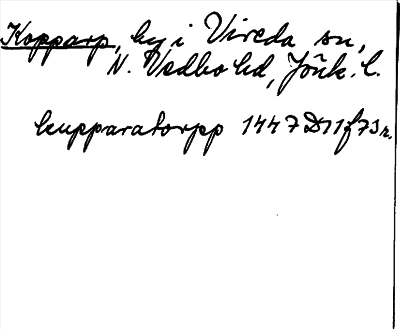 Kopparp, by i Vireda sn,
N. Vedbo hd, Jönk. l.
kupparatorpp 1447 D11 f 73 r.